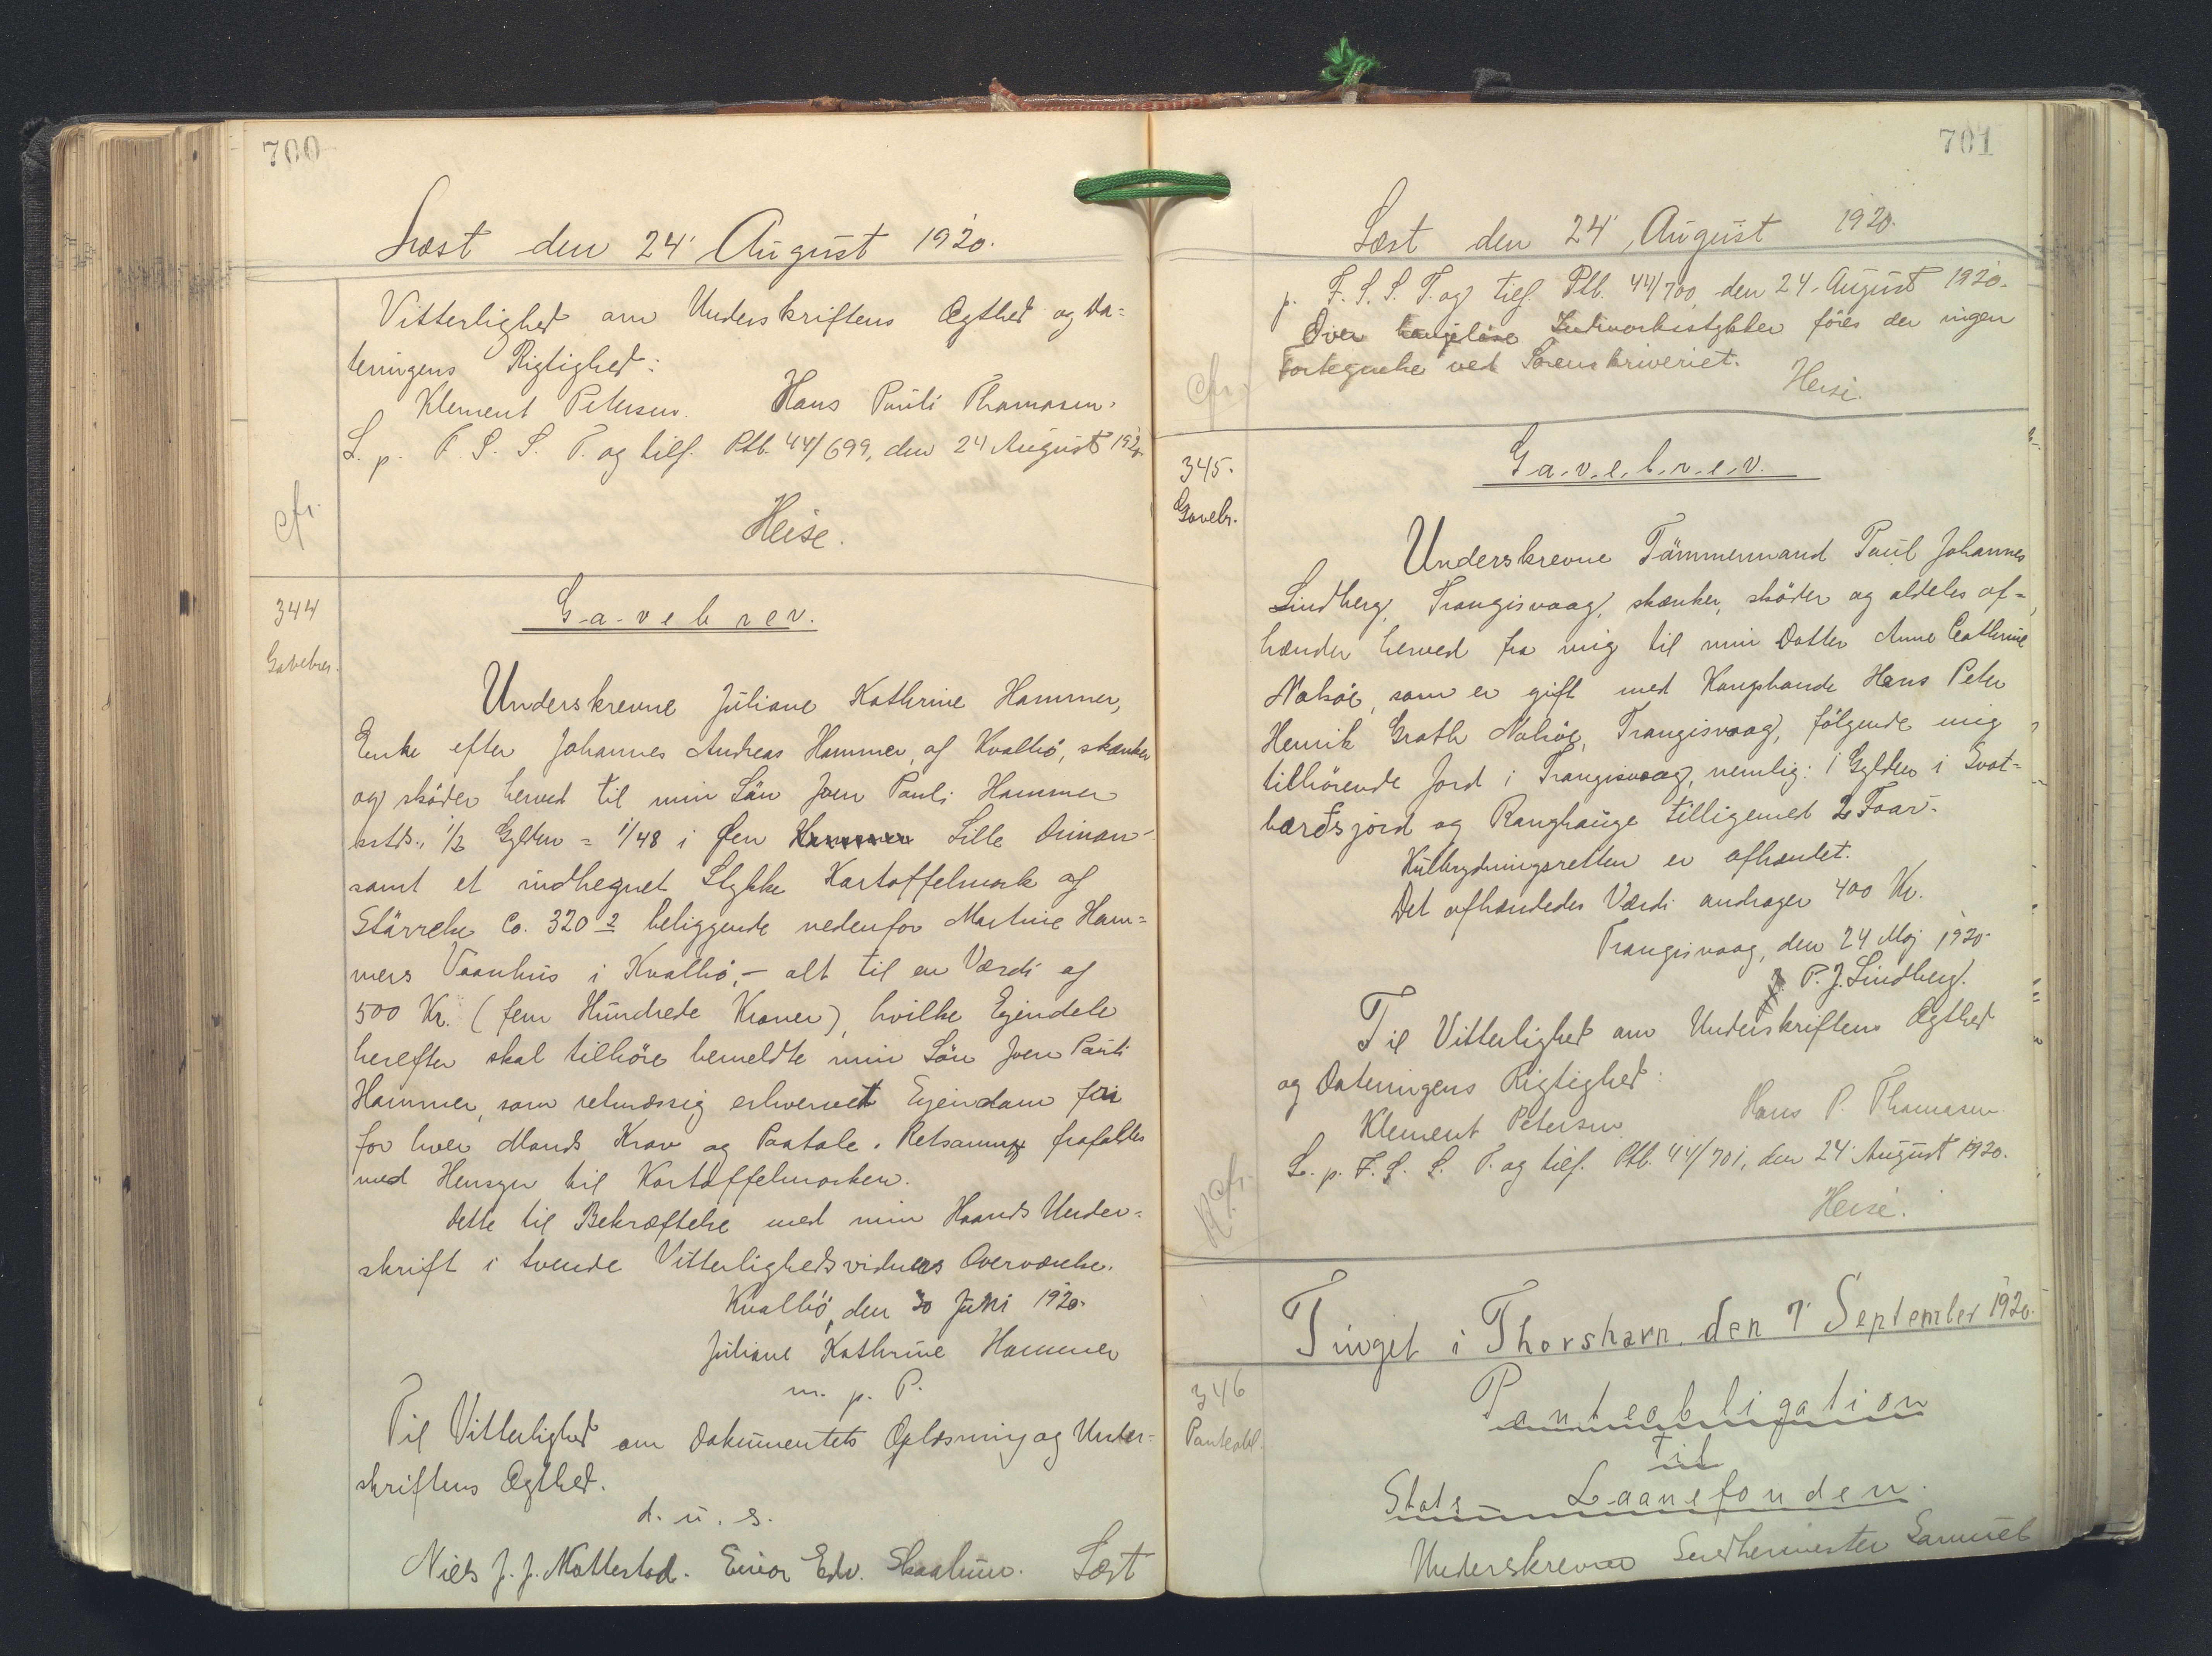 700
Læst den 24' August 1920.
Vitterlighed om Underskriftens Ægthed og Da=
teringens Rigtighed:
Klement Petersen. Hans Pauli Thomasen.
L. p. F. S. S. T. og tilf. Ptb. 44/699, den 24 August 1920.
cfr.
Heise.
344
Gavebrev.
Gavebrev.
Underskrevne Juliane Kathrine Hammer,
Enke efter Johannes Andreas Hammer, af Kvalbø, skænker
og skøder herved til min Søn Joen Pauli Hammer
bstds., 1/2 Gylden = 1/48 i Øen Lille Diman-
samt et indhegnet Stykke Kartoffelmark af
Størrelse Co. 320 2 beliggende nedenfor Martine Ham=
mers Vaanhus i Kvalbø, - alt til en Værdi af
500 Kr. (fem Hundrede Kroner), hvilke Ejendele
herefter skal tilhøre bemeldte min Søn Joen Pauli
Hammer, som retmæssig erhvervet Ejendom fri
for hver Mands Krav og Paatale. Retsanmg frafaldes
med Hensyn til Kartoffelmarken.
Dette til Bekræftelse med min Haands Under=
skrift i tvende Vitterlighedsvidners Overværelse.
Kvalbø, den 30 Juni 1920.
Juliane Kathrine Hammer
m. p. P.
Til Vitterlighed om Dokumentets Oplæsning og Under=
skriftens Ægthed.
d. u. s.
Niels J. J. Nattestad. Einar Edv. Skaalum. Læst
701
Læst den 24' August 1920.
p. F. S. S. T. og tilf. Ptb. 44/700, den 24. August 1920.
Over Indmarksstykker føres der ingen
Fortegnelse ved Sorenskriveriet.
cfr.
Heise.
345.
Gavebr.
Gavebrev.
Underskrevne Tømmermand Poul Johannes
Lindberg, Trangisvaag, skænker, skøder og aldeles af=
hænder herved fra mig til min Datter Anne Cathrine
Nolsøe, som er gift med Kauphande Hans Peter
Henrik Groth Nolsøe, Trangisvaag, følgende mig
tilhørende Jord i Trangisvaag, nemlig: 1 Gylden i Svot=
bardsjord og Ranghauge tilligemed 2 Faar-
Kulbrydningsretten er afhændet.
Det afhændedes Værdi andrager 400 Kr.
Trangisvaag, den 24 Maj 1920.
P. J. Lindberg.
Til Vitterlighed om Underskriftens Ægthed
og Dateringens Rigtighed:
Klement Petersen Hans P. Thomasen.
L. p. F. S. S. T. og tilf. Ptb. 44/701, den 24. August 1920.
cfr.
Heise.
Tinget i Thorshavn. den 7' September 1920.
346
Panteobl.
Panteobligation
til
Stats-Laanefonden.
Underskrevne Samuel